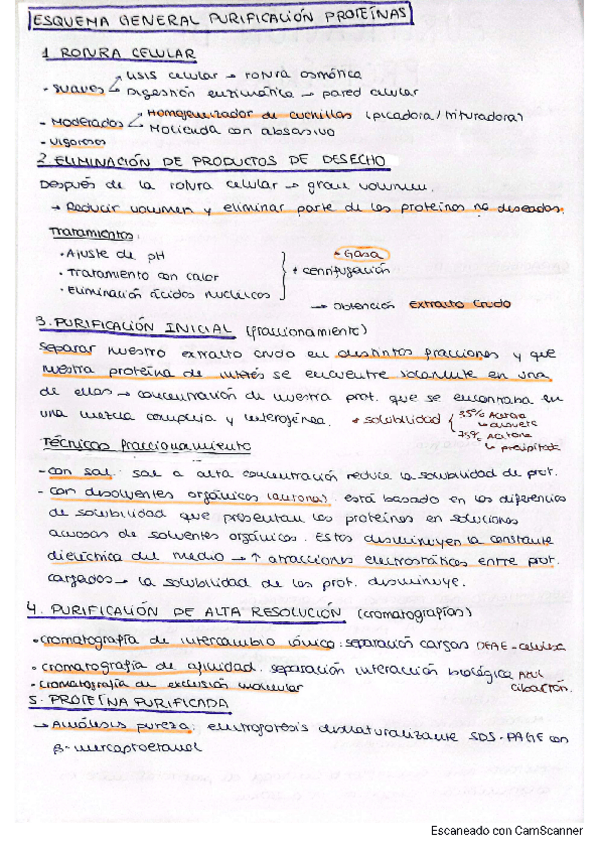 ESQUEMA GENERAL PURIFICACIÓN PROTEÍNAS
1. ROTURA CELULAR
- Suaves
Lisis celular → rotura osmótica
Digestión enzimática → pared celular
- Moderados
Homogeneizador de cuchillas (picadora/trituradora)
Molienda con abrasivo
- Vigorosos
2. ELIMINACIÓN DE PRODUCTOS DE DESECHO
Después de la rotura celular → gran volumen.
→ Reducir volumen y eliminar parte de las proteínas no deseadas.
Tratamientos:
· Ajuste de pH
· Tratamiento con calor
· Eliminación ácidos nucleicos
+ Gasa
+ centrifugación
→ obtención extracto crudo
3. PURIFICACIÓN INICIAL (fraccionamiento)
Separar nuestro extracto crudo en distintas fracciones y que
nuestra proteína de interés se encuentre solamente en una
de ellas → concentración de nuestra prot. que se encontraba en
una mezcla compleja y heterogénea. * solubilidad
35% Acetona
↳ disuelve
75% Acetona
↳ precipitada
Técnicas fraccionamiento
- con sal: sal a alta concentración reduce la solubilidad de prot.
- con disolventes orgánicos (acetona): está basado en las diferencias
de solubilidad que presentan las proteínas en soluciones
acuosas de solventes orgánicos. Estos disminuyen la constante
dieléctrica del medio → ↑ atracciones electrostáticas entre prot.
cargadas → la solubilidad de las prot. disminuye.
4. PURIFICACIÓN DE ALTA RESOLUCIÓN (cromatografías)
· cromatografía de intercambio iónico: separación cargas DEAE-celulosa
· cromatografía de afinidad: separación interacción biológica Azul
cibacrón.
· cromatografía de exclusión molecular
5. PROTEÍNA PURIFICADA
→ Análisis pureza: electroforesis desnaturalizante SDS-PAGE con
β-mercaptoetanol
Escaneado con CamScanner